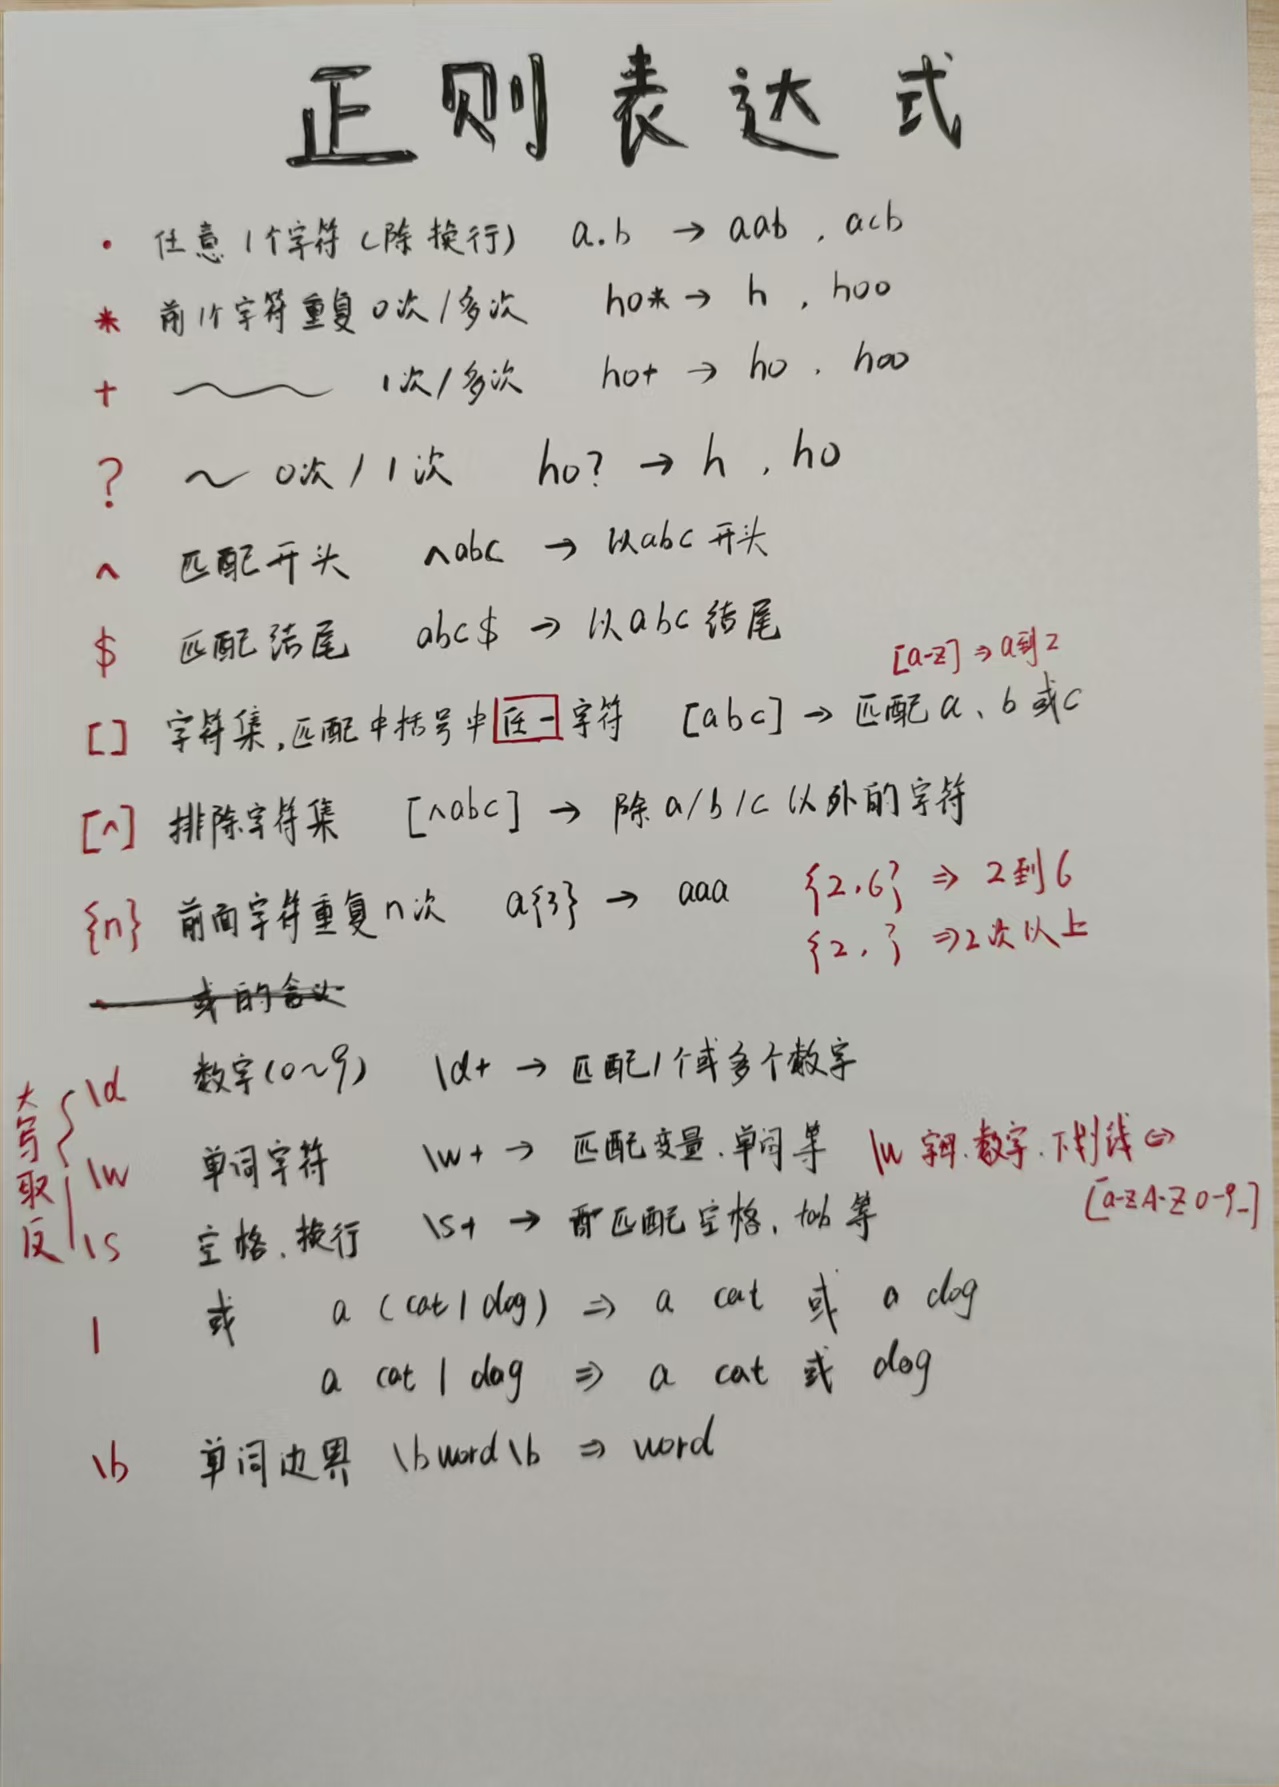 正则表达式
. 任意1个字符(除换行) a.b → aab, acb
* 前1个字符重复0次/多次 ho* → h, hoo
+ ～～ 1次/多次 ho+ → ho, hoo
? ～ 0次/1次 ho? → h, ho
^ 匹配开头 ^abc → 以abc开头
$ 匹配结尾 abc$ → 以abc结尾
[a-z] ⇒ a到z
[] 字符集,匹配中括号中任一字符 [abc] → 匹配a、b或c
[^] 排除字符集 [^abc] → 除a/b/c以外的字符
{n} 前面字符重复n次 a{3} → aaa {2,6} ⇒ 2到6
{2,} ⇒ 2次以上
或的含义
大写取反
\d 数字(0~9) \d+ → 匹配1个或多个数字
\w 单词字符 \w+ → 匹配变量、单词等 \w 字母、数字、下划线 ⇔
[a-zA-Z0-9_]
\s 空格、换行 \s+ → 匹配空格、tab等
| 或 a (cat|dog) ⇒ a cat 或 a dog
a cat | dog ⇒ a cat 或 dog
\b 单词边界 \bword\b ⇒ word